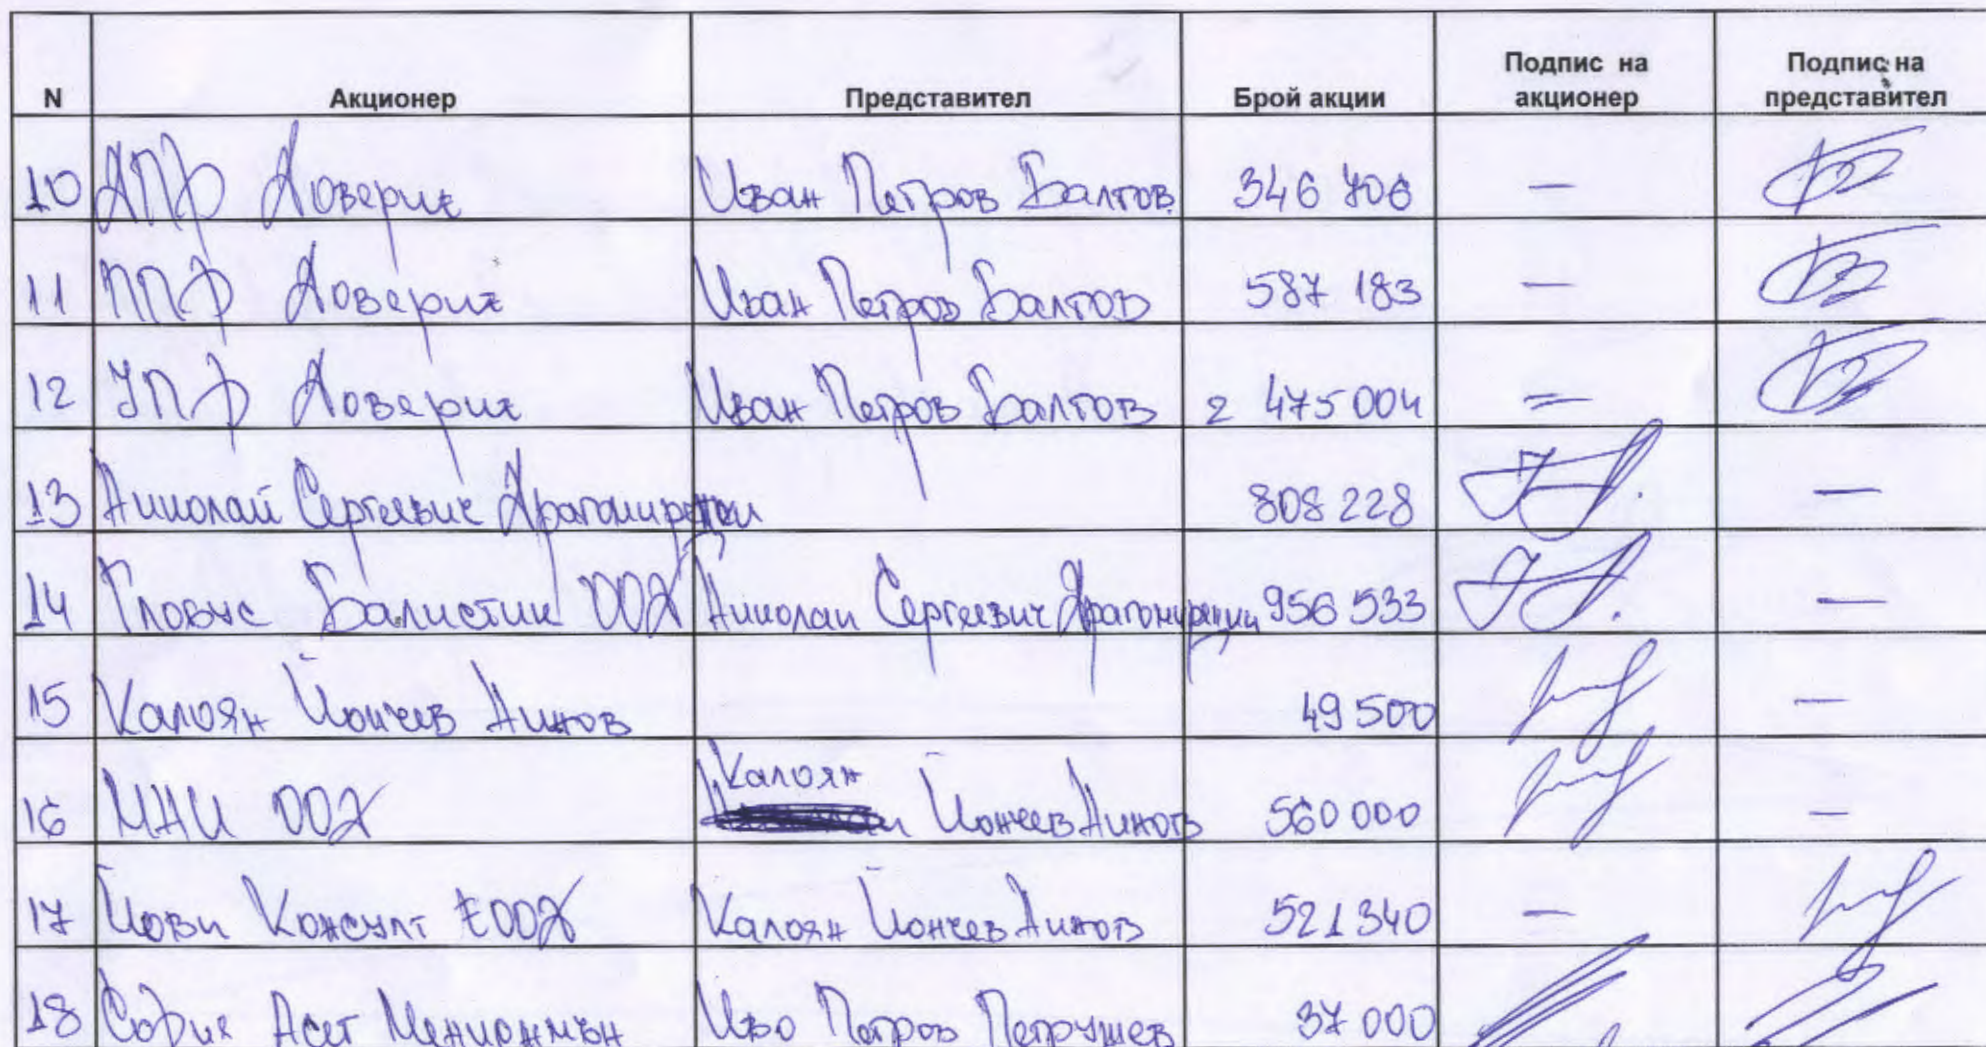 N Акционер Представител Брой акции Подпис на акционер Подпис на представител
10 ДПФ Доверие Иван Петров Балтов 346 706 —
11 ППФ Доверие Иван Петров Балтов 587 183 —
12 УПФ Доверие Иван Петров Балтов 2 475 004 =
13 Николай Сергеевич Драгомирецки 808 228 —
14 Глобус Балистик ООД Николай Сергеевич Драгомирецки 956 533 —
15 Калоян Йончев Динов 49 500 —
16 ООД Калоян Йончев Динов 560 000 —
17 Йови Консулт ЕООД Калоян Йончев Динов 521 340 —
18 София Асет Мениджмън Иво Петров Петрушев 37 000